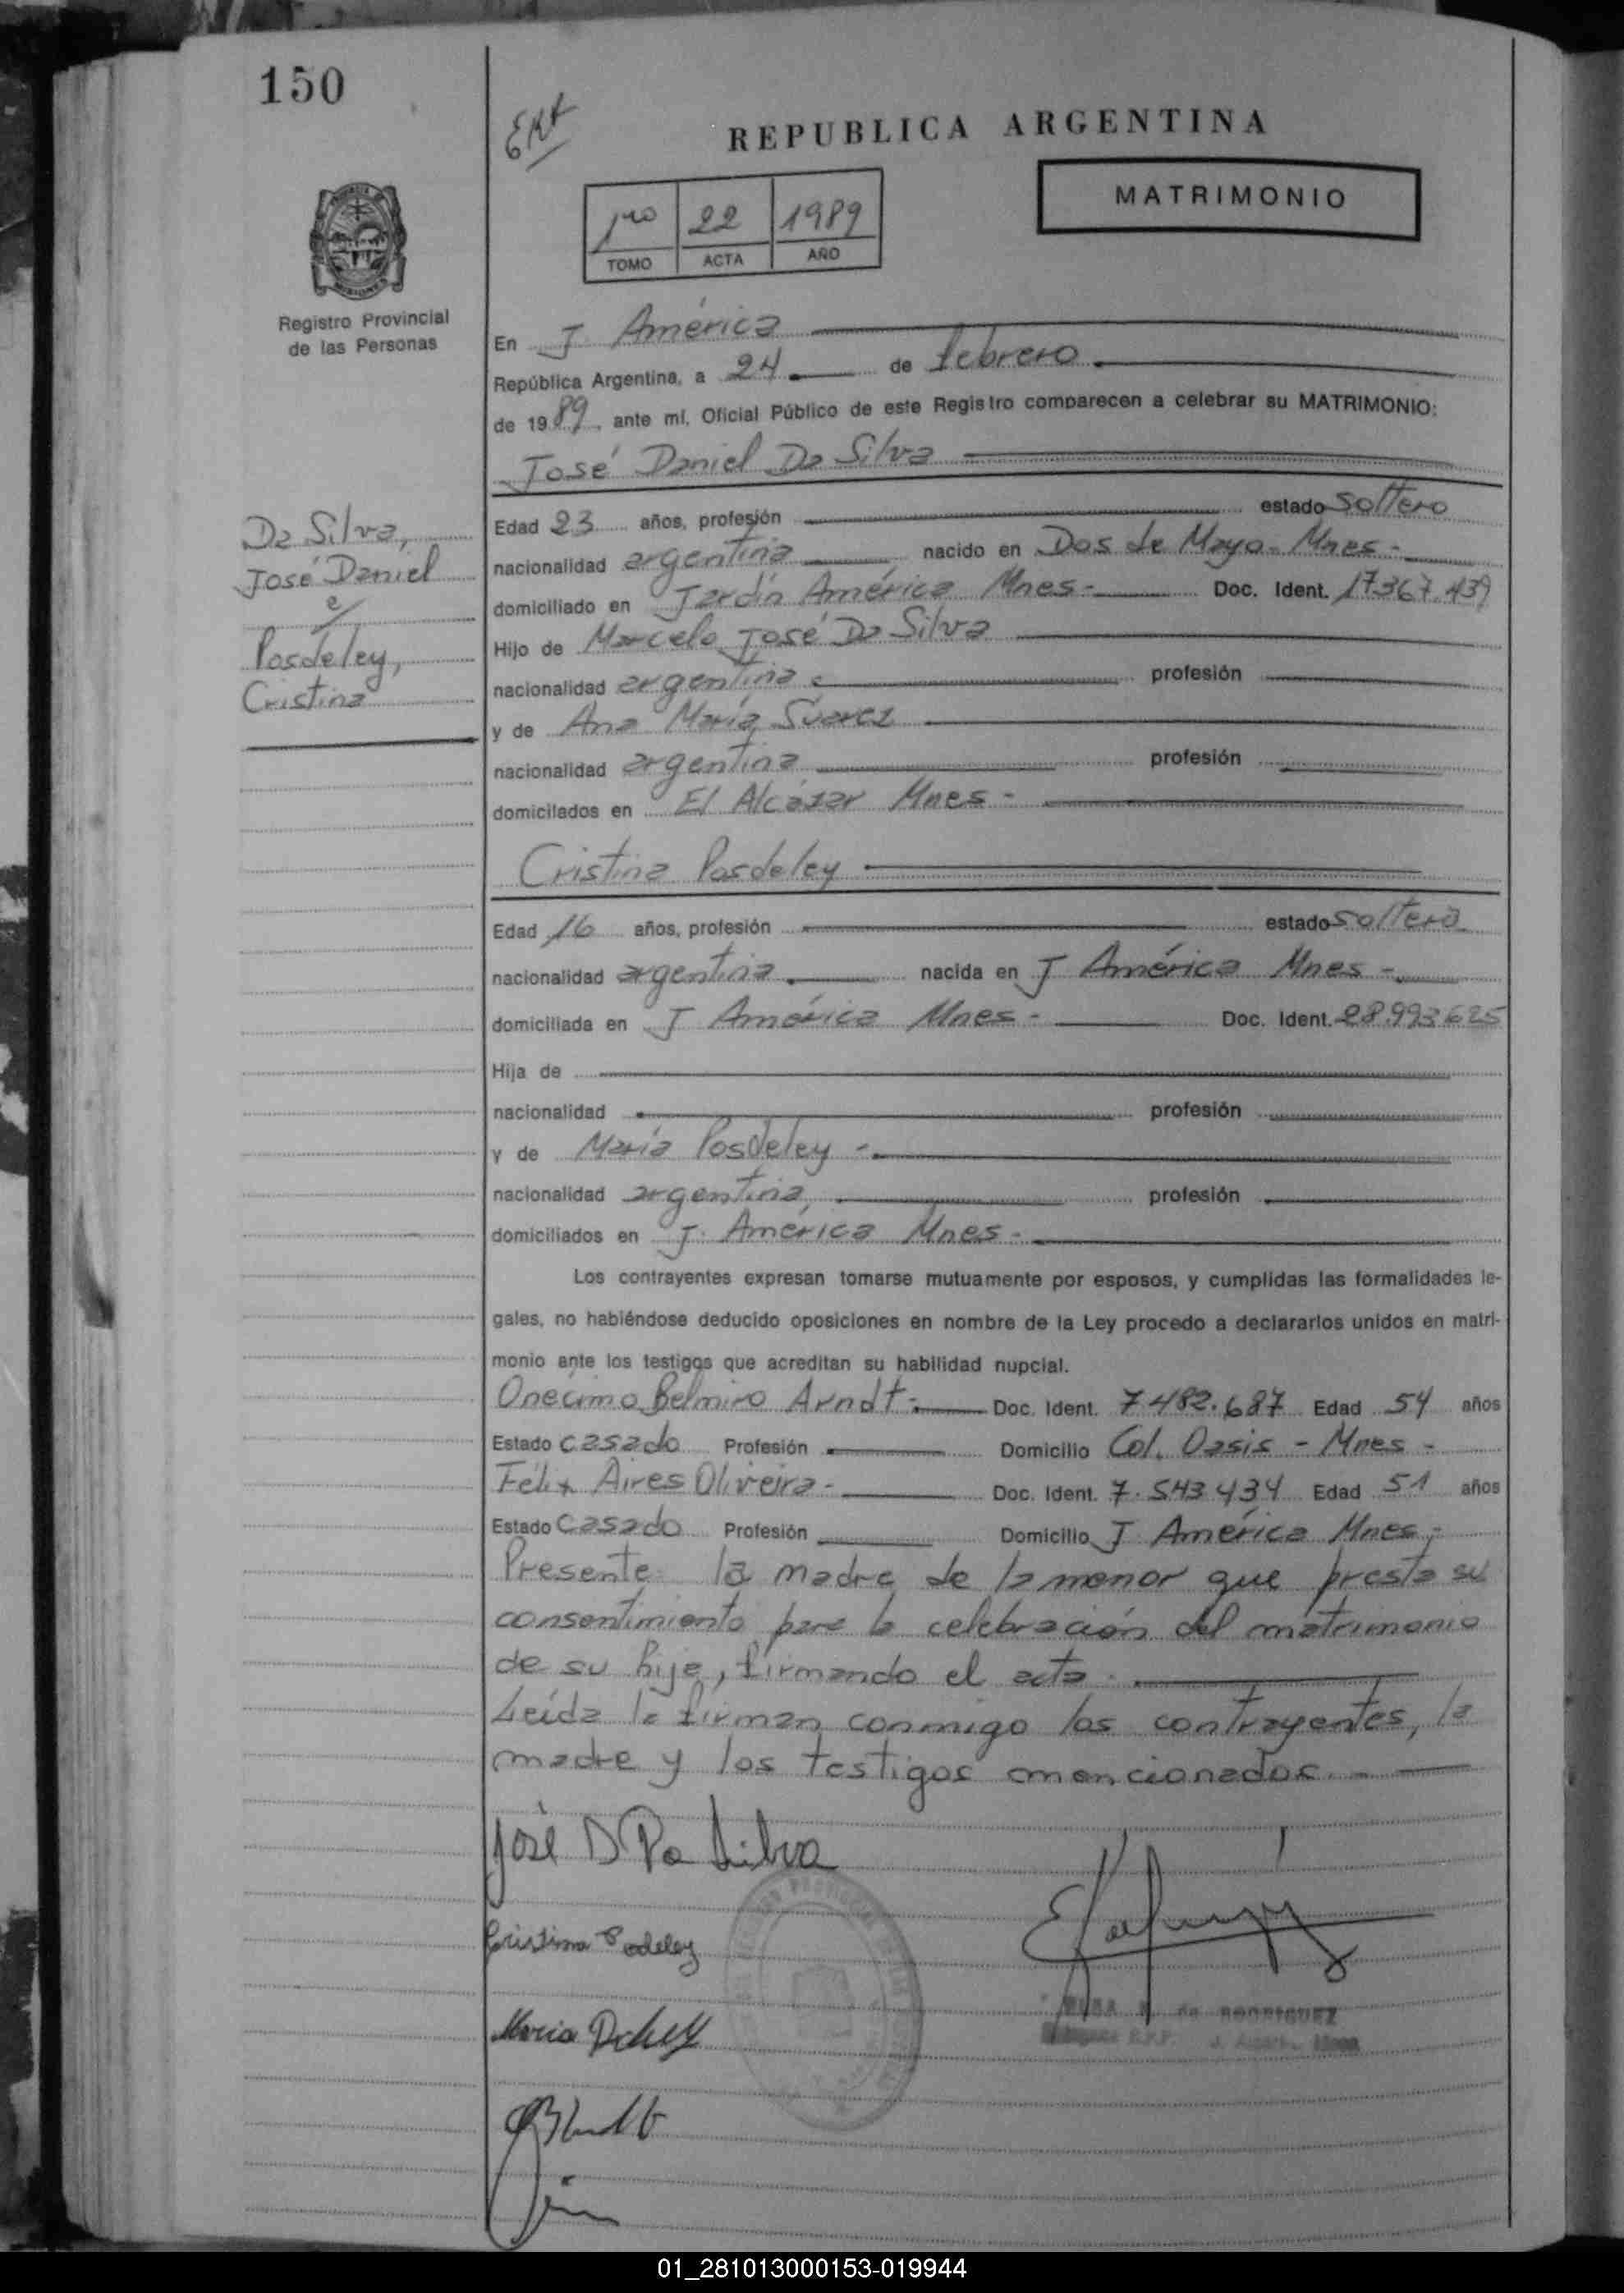 150
Ext
REPUBLICA ARGENTINA
MATRIMONIO
1ro 22 1989
TOMO ACTA AÑO
Registro Provincial
de las Personas
En J. América
República Argentina, a 24 de febrero
de 1989, ante mí, Oficial Público de este Registro comparecen a celebrar su MATRIMONIO:
José Daniel Da Silva
Da Silva,
José Daniel
c/
Posdeley,
Cristina
Edad 23 años, profesión estado soltero
nacionalidad argentina nacido en Dos de Mayo - Mnes -
domiciliado en Jardín América Mnes - Doc. Ident. 17.367.439
Hijo de Marcelo José Da Silva
nacionalidad argentina profesión
y de Ana María Suarez
nacionalidad argentina profesión
domiciliados en El Alcázar Mnes -
Cristina Posdeley
Edad 16 años, profesión estado soltera
nacionalidad argentina nacida en J América Mnes -
domiciliada en J América Mnes - Doc. Ident. 28.993.625
Hija de
nacionalidad profesión
y de María Posdeley -
nacionalidad argentina, profesión
domiciliados en J. América Mnes -
Los contrayentes expresan tomarse mutuamente por esposos, y cumplidas las formalidades le-
gales, no habiéndose deducido oposiciones en nombre de la Ley procedo a declararlos unidos en matri-
monio ante los testigos que acreditan su habilidad nupcial.
Onecimo Belmiro Arndt - Doc. Ident. 7.482.687 Edad 54 años
Estado casado Profesión Domicilio Col. Oasis - Mnes -
Félix Aires Oliveira - Doc. Ident. 7.543.434 Edad 51 años
Estado casado Profesión Domicilio J América Mnes -
Presente la madre de la menor que presta su
consentimiento para la celebración del matrimonio
de su hija, firmando el acta.
Leída la firman conmigo los contrayentes, la
madre y los testigos mencionados. -
José D Da Silva
Cristina Podeley
Maria
de RODRIGUEZ
01_281013000153-019944